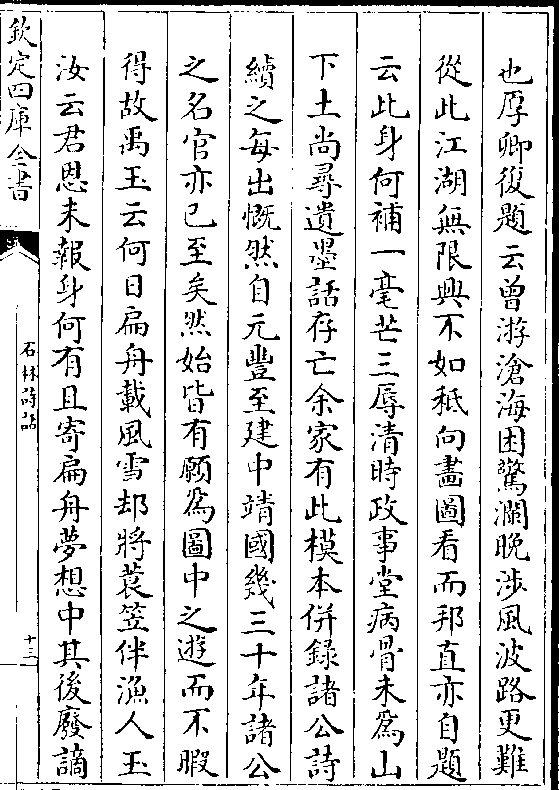 也厚卿復題云曾游滄海困驚瀾晚涉風波路更難
從此江湖無限興不如秪向畫圖看而邦直亦自題
云此身何補一毫芒三辱清時政事堂病骨未為山
下土尚尋遺墨話存亡余家有此模本併錄諸公詩
續之每出慨然自元豐至建中靖國幾三十年諸公
之名官亦已至矣然始皆有願為圖中之遊而不暇
得故禹玉云何日扁舟載風雪却將蓑笠伴漁人玉
汝云君恩未報身何有且寄扁舟夢想中其後廢謫
欽定四庫全書
石林詩話
十三